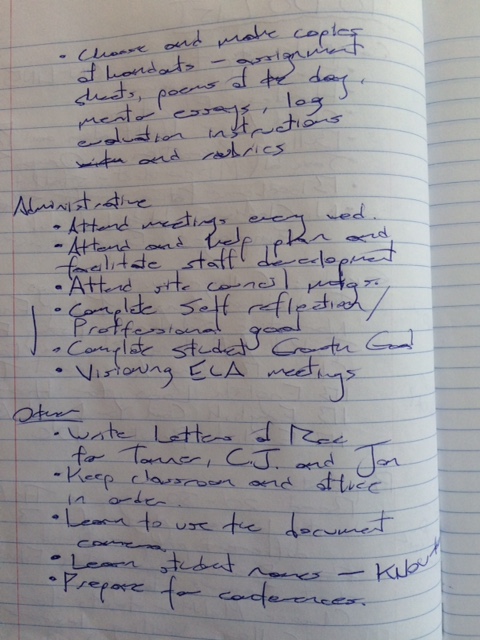 • Choose and make copies
of handouts – assignment
sheets, poems of the day,
mentor essays, log
evaluation instructions
and rubrics
Administrative
• Attend meetings every wed.
• Attend and help plan and
facilitate staff development
• Attend site council mtgs.
• Complete Self reflection/
Proffessional goal
• Complete Student Growth Goal
• Visioning ELA meetings
Other
• Write Letters of Rec
for Tanner, C.J. and Jon
• Keep classroom and office
in order.
• Learn to use the document
camera
• Learn student names – Know
• Prepare for conferences.